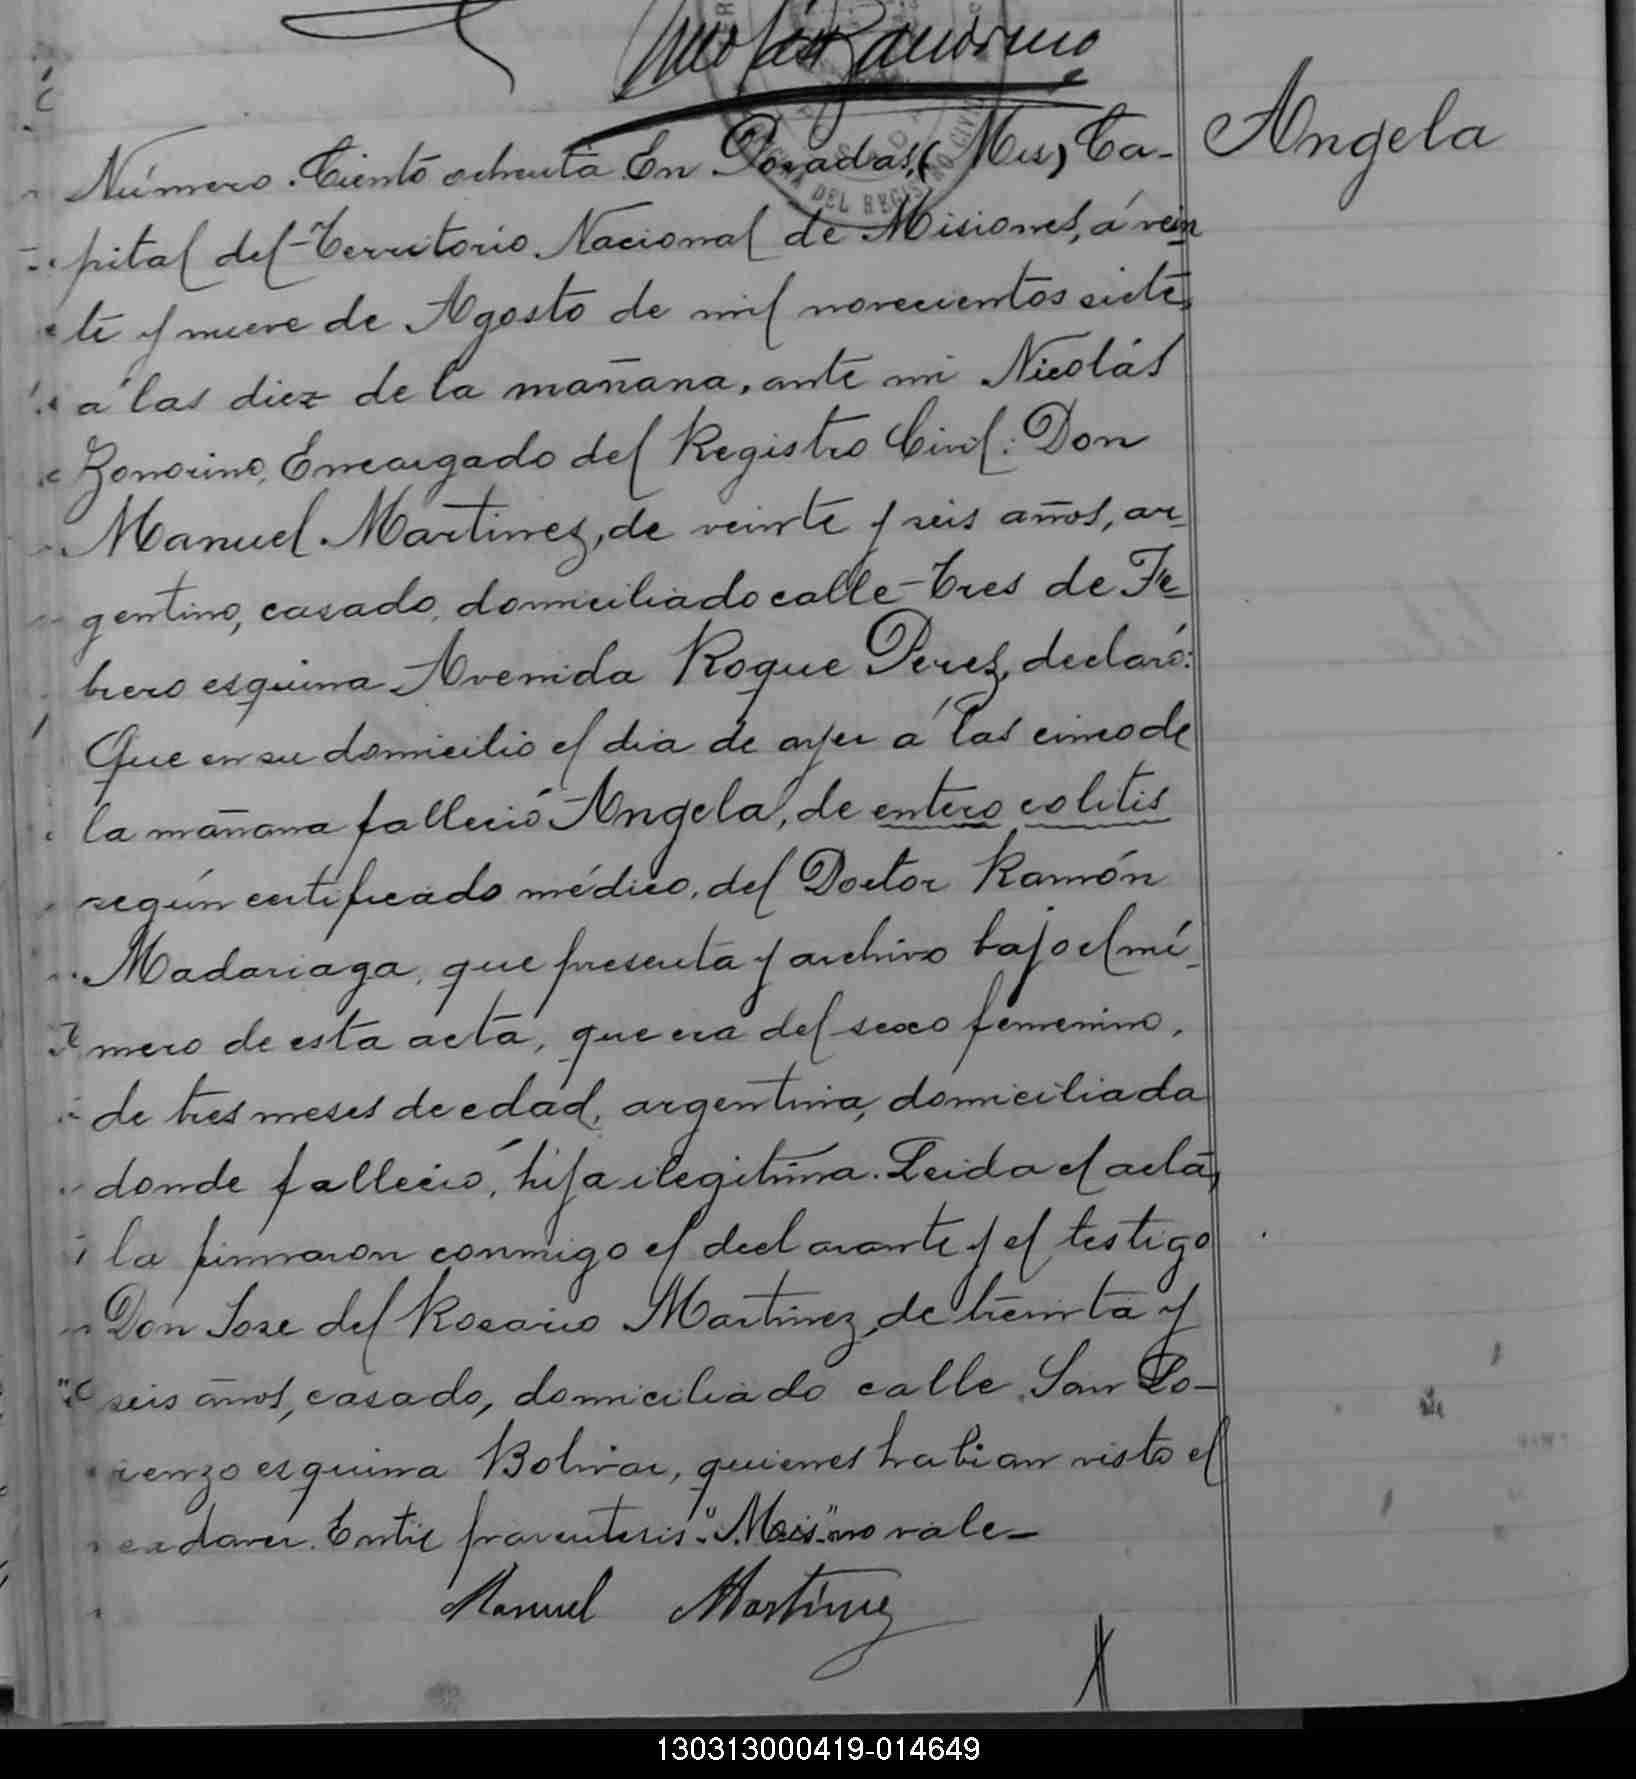 Nicolás Zonorino
Angela
Número Ciento ochenta En Posadas, (Mis) Ca-
pital del Territorio Nacional de Misiones, á vein
te y nueve de Agosto de mil novecientos siete,
a las diez de la mañana, ante mi Nicolás
Zonorino, Encargado del Registro Civil: Don
Manuel Martinez, de veinte y seis años, ar-
gentino, casado, domiciliado calle Tres de Fe-
brero esquina Avenida Roque Perez, declaró:
Que en su domicilio el dia de ayer á las cinco de
la mañana falleció Angela, de entero colitis
según certificado médico, del Doctor Ramón
Madariaga, que presenta y archivo bajo el nú-
mero de esta acta, que era del sexo femenino,
de tres meses de edad, argentina, domiciliada
donde falleció, hija ilegitima. Leida el acta,
la firmaron conmigo el declarante y el testigo
Don Jose del Rosario Martinez, de treinta y
seis años, casado, domiciliado calle San Lo-
renzo esquina Bolivar, quienes habian visto el
cadaver. Entre parentesis "Mis" no vale-
Manuel Martínez
130313000419-014649